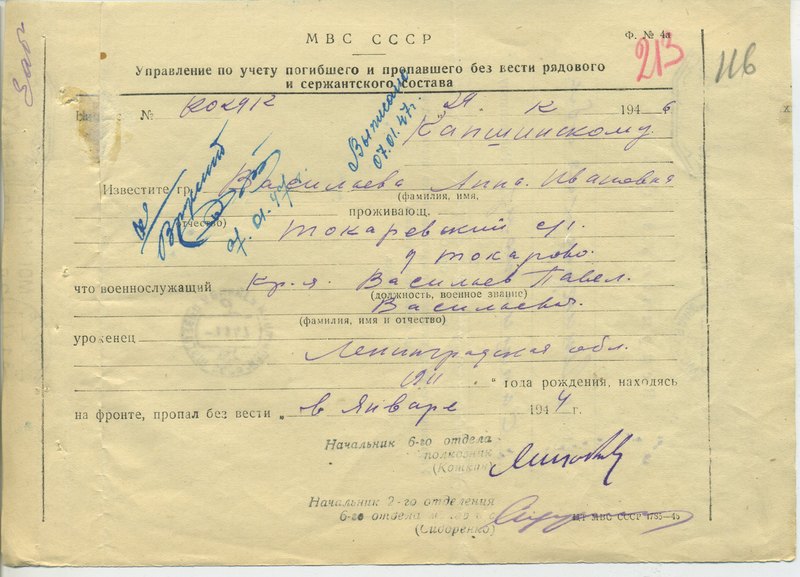 МВС СССР
Ф. № 4а
213
116
Управление по учету погибшего и пропавшего без вести рядового
и сержантского состава
№ 602912 „29. X 1946
Капшинскому
Выписан
07.01.47г.
Известите гр. Васильева Анна Ивановна
(фамилия, имя,
отчество) проживающ.
07.01.47
Токаревский с/с
д Токарово
что военнослужащий кр-я. Васильев Павел
(должность, военное звание)
Васильевич
(фамилия, имя и отчество)
уроженец
Ленинградская обл.
1911 года рождения, находясь
на фронте, пропал без вести „ в Январе 1944 г.
Начальник 6-го отдела
полковник
(Кошкин)
Начальник 2-го отделения
6-го отдела
(Сидоренко)
МВС СССР 1785—46